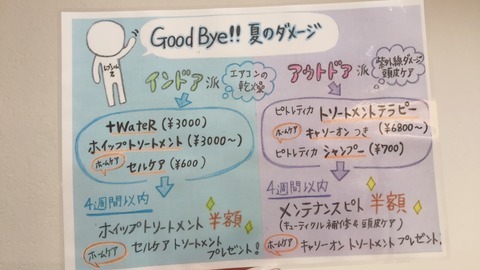 Good Bye!! 夏のダメージ
インドア派
エアコンの
乾燥
+WateR (¥3000)
ホイップトリートメント (¥3000〜)
ホームケア セルケア (¥600)
4週間以内
ホイップトリートメント 半額
ホームケア セルケアトリートメント
プレゼント!
アウトドア派
紫外線ダメージ
頭皮ケア
ピトレティカ トリートメントテラピー
ホームケア キャリーオン つき (¥6800〜)
ピトレティカ シャンプー (¥700)
4週間以内
メンテナンスピト 半額
(キューティクル補修&頭皮ケア)
ホームケア キャリーオン トリートメント プレゼント!